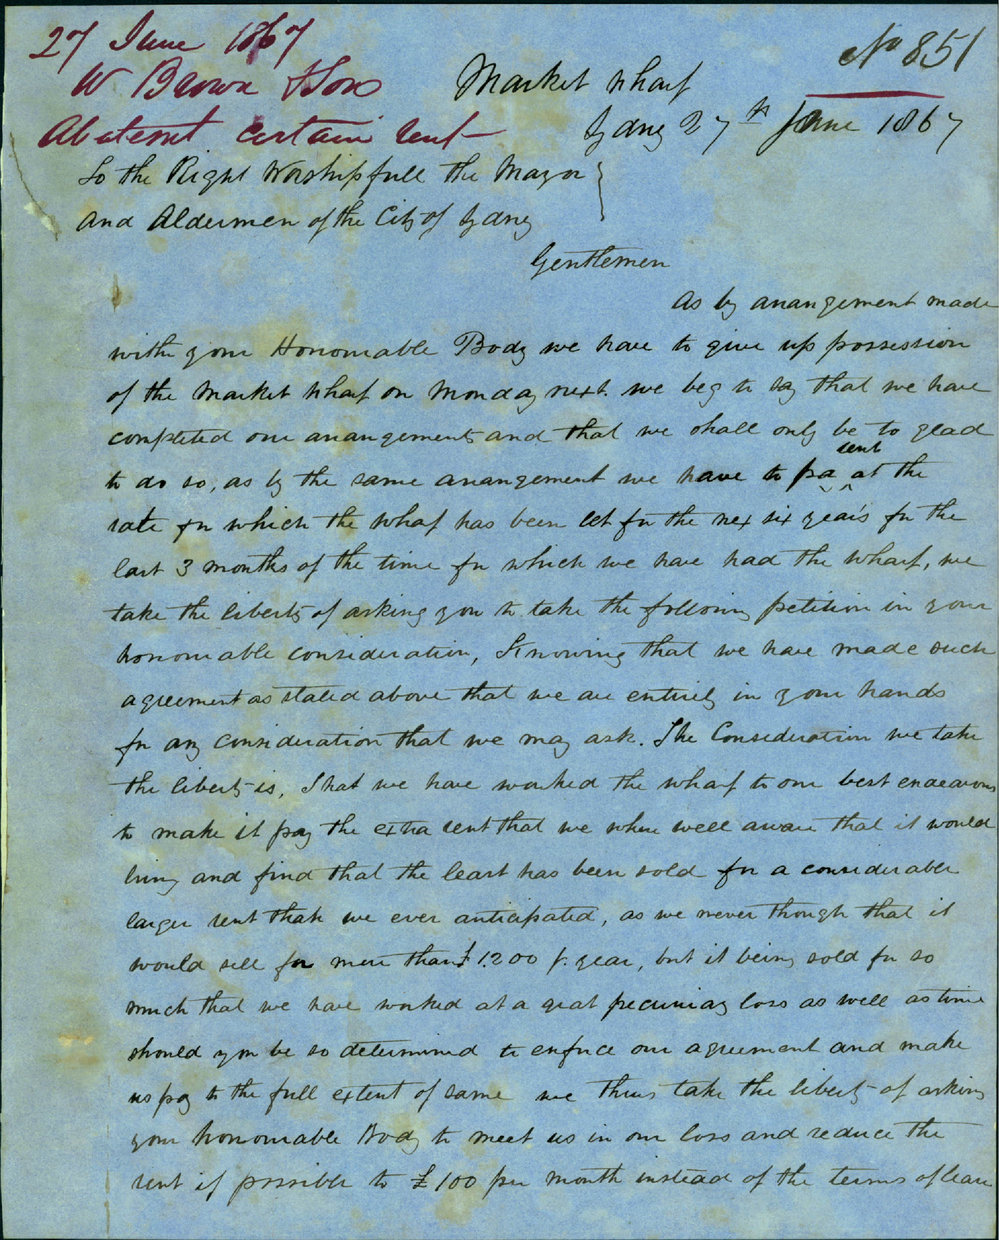 27 June 1867
No 851
W Brown & Sons
Market Wharf
Abatemt certain rent
Sydney 27th June 1867
To the Right Worshipfull the Mayor
and Aldermen of the City of Sydney
Gentlemen
As by anangement made
with your Honourable Body we have to give up possession
of the Market Wharf on Monday next. we beg to say that we have
completed our anangements and that we shall only be to glad
to do so, as by the same anangement we have to pa rent at the
rate for which the Wharf has been let for the nex six years for the
last 3 months of the time for which we have had the Wharf, we
take the liberty of asking you to take the following petition in your
honourable consideration, Knowing that we have made such
agreement as stated above that we are entirely in your hands
for any consideration that we may ask. The Consideration we take
the liberty is, That we have worked the Wharf to our best endeavours
to make it pay the extra rent that we where well aware that it would
bring and find that the leart has been sold for a considerable
larger rent than we ever anticipated, as we never though that it
would sell for more than £1200 p. year, but it being sold for so
much that we have worked at a great pecuniay loss as well as time
should you be so determined to enforce our agreement and make
us pay to the full extent of same we thus take the liberty of asking
your honourable Body to meet us in our loss and reduce the
rent if possible to £100 per month instead of the terms of leave